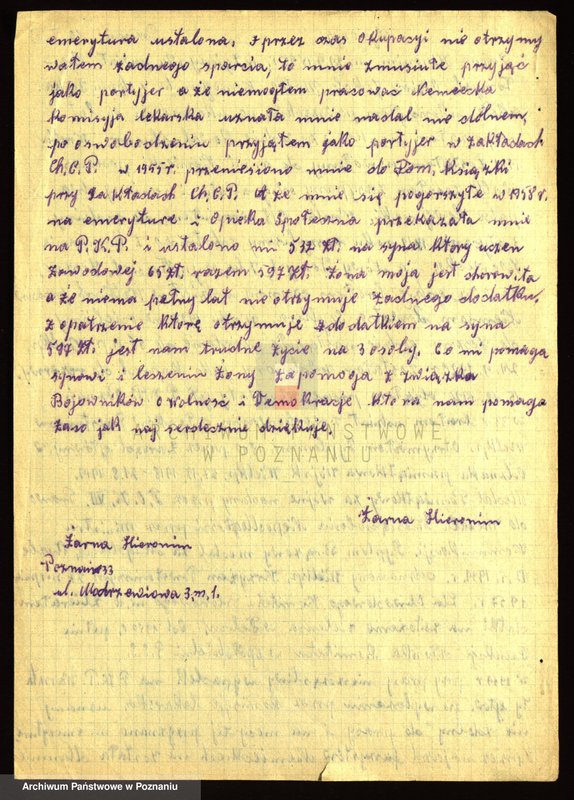 emerytura ustalona, i przez czas okupacyi nie otrzymy
wałem żadnego sparcia, to mnie zmusiułe przyjąć
jako portyjer a że niemogłem pracować Niemiecka
komisyja lekarska uznała mnie nadal nie dólnem,
po oswobodzeniu przyjąłem jako portyjer w zakładach
Ch.C.P. w 1955r. przeniesiono mnie do Dom. Książki
przy Zakładach Ch.C.P. A że mnie się pogorszyłe w 1958r.
na emeryture i Opieka Społeszna przekazała mnie
na P.K.P. i ustalono mi 532 zł. na syna który uczen
Zawodowej 65zł. razem 597 zł. Żona moja jest chorowita
a że niema pełny lat nie otrzymuje żadnego dodatku,
zopatrzenie które otrzymuje z dodatkiem na syna
597 zł. jest nam trudne życie na 3 osoby. Co mi pomaga
synowi i leszeniu żony zapomoga z związka
Bojowników o wolność i Demokracje która nam pomaga
zaco jak naj serdeszniе dziękuje.
Żarna Hieronim
Żarna Hieronim
Poznań 33
ul. Modrzewiowa 3, m, 1.
ARCHIWUM PAŃSTWOWE
W POZNANIU
Archiwum Państwowe w Poznaniu